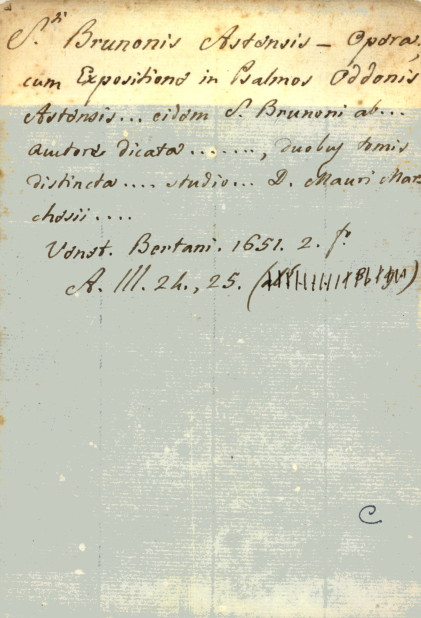 S.ti Brunonis Astensis – Opera,
cum Expositione in Psalmos Oddonis
Astensis... eidem S. Brunoni ab...
auctore dicata ......., duobus tomis
distincta .... studio... D. Mauri Mar-
chesii ....
Venet. Bertani. 1651. 2. f.º
A. III. 24., 25.
C